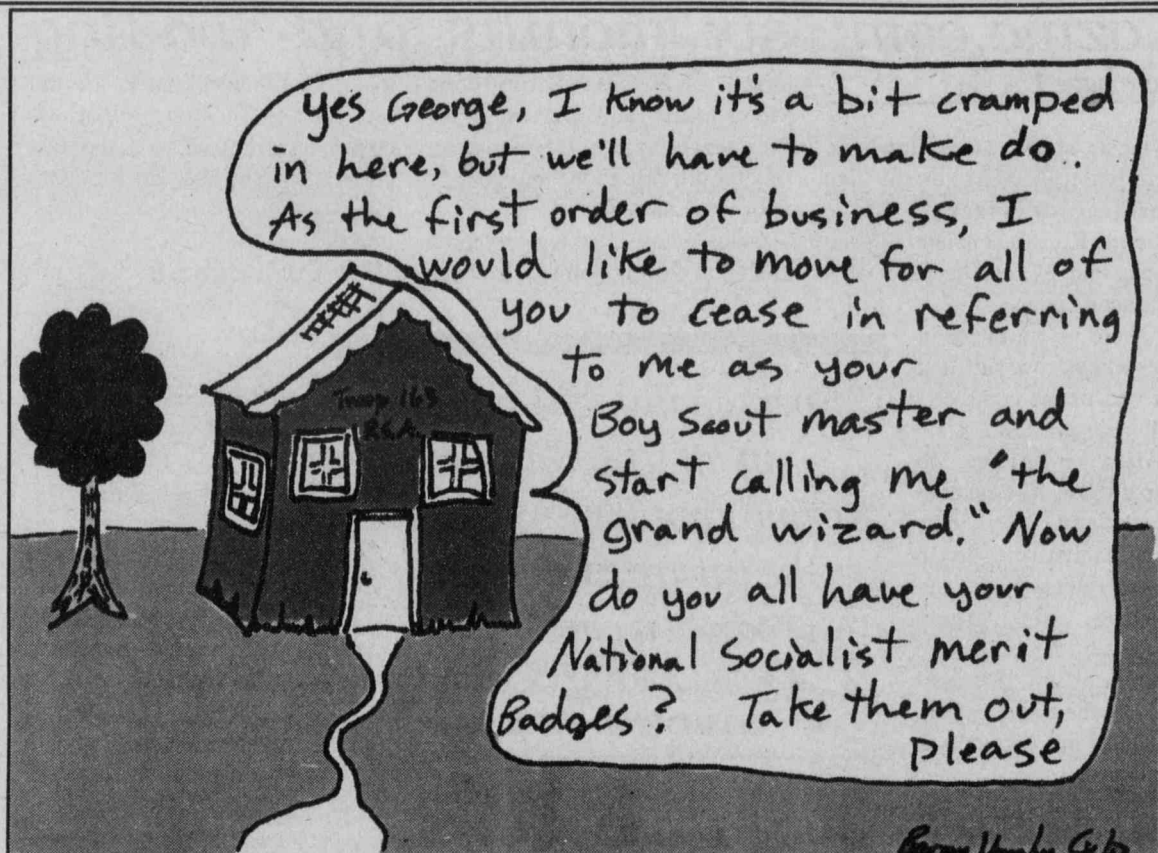 Yes George, I know it's a bit cramped
in here, but we'll have to make do.
As the first order of business, I
would like to move for all of
you to cease in referring
to me as your
Boy Scout master and
start calling me "the
grand wizard." Now
do you all have your
National Socialist merit
Badges? Take them out,
please
Troop 163